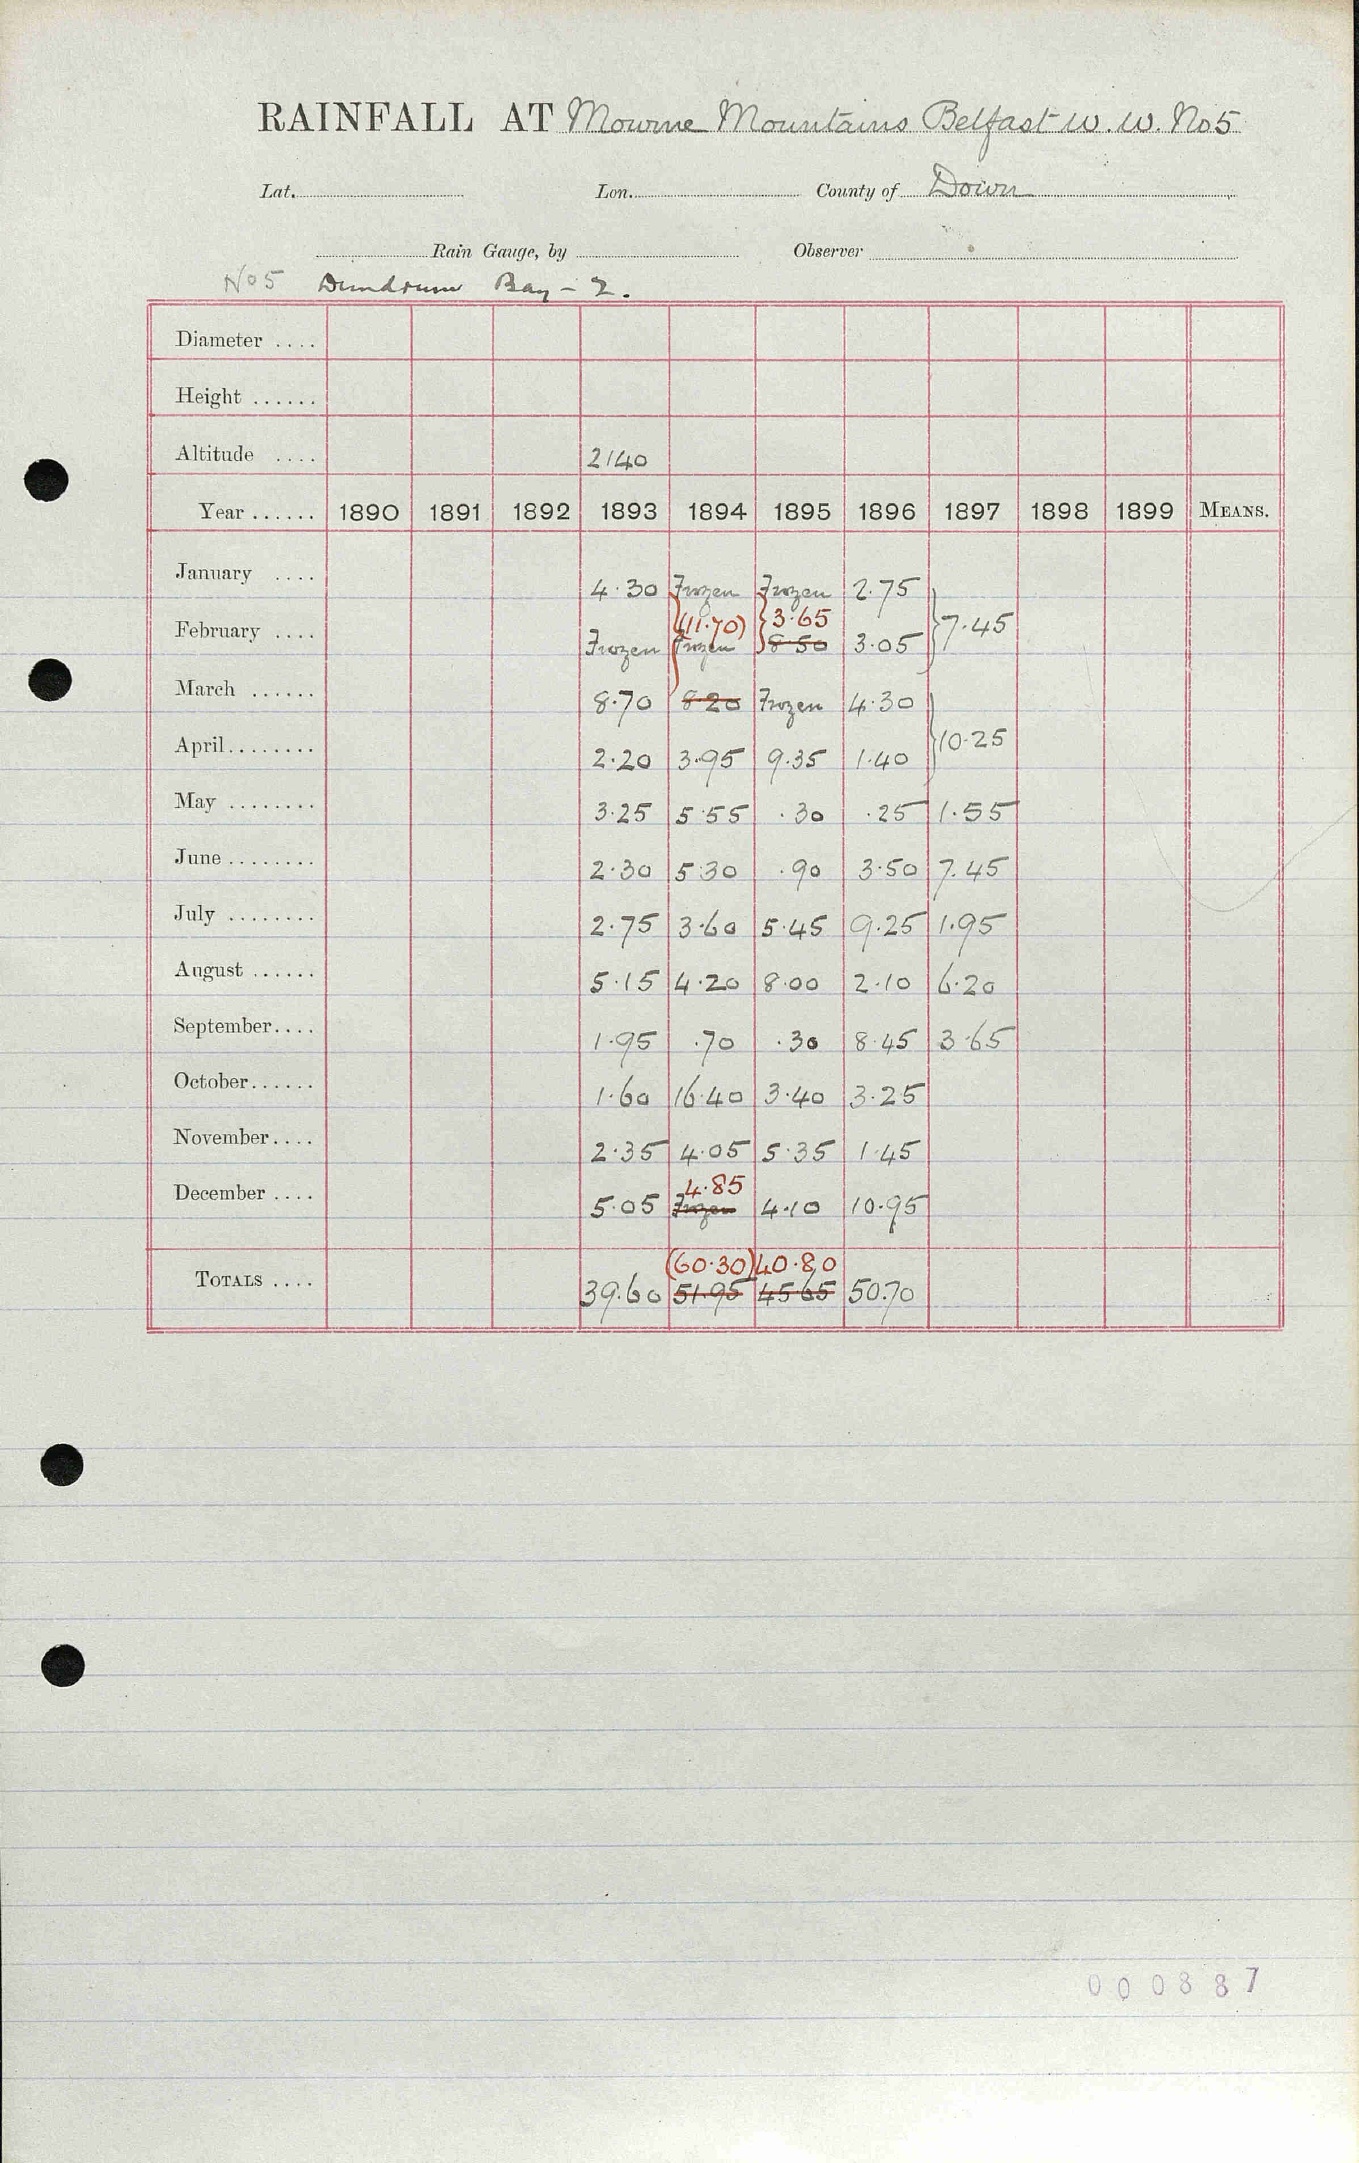 RAINFALL AT Mourne Mountains Belfast W. W. No 5
Lat. Lon. County of Down
Rain Gauge, by Observer
No 5 Dundrum Bay - 2.
Diameter ....
Height ......
Altitude .... 2140
Year ...... 1890 1891 1892 1893 1894 1895 1896 1897 1898 1899 MEANS.
January .... 4.30 Frozen Frozen 2.75
(11.70) 3.65 7.45
February .... Frozen Frozen 8.50 3.05
March ...... 8.70 8.20 Frozen 4.30
10.25
April........ 2.20 3.95 9.35 1.40
May ........ 3.25 5.55 .30 .25 1.55
June ........ 2.30 5.30 .90 3.50 7.45
July ........ 2.75 3.60 5.45 9.25 1.95
August ...... 5.15 4.20 8.00 2.10 6.20
September.... 1.95 .70 .30 8.45 3.65
October...... 1.60 16.40 3.40 3.25
November.... 2.35 4.05 5.35 1.45
4.85
December .... 5.05 Frozen 4.10 10.95
(60.30) 40.80
TOTALS .... 39.60 51.95 45.65 50.70
000887